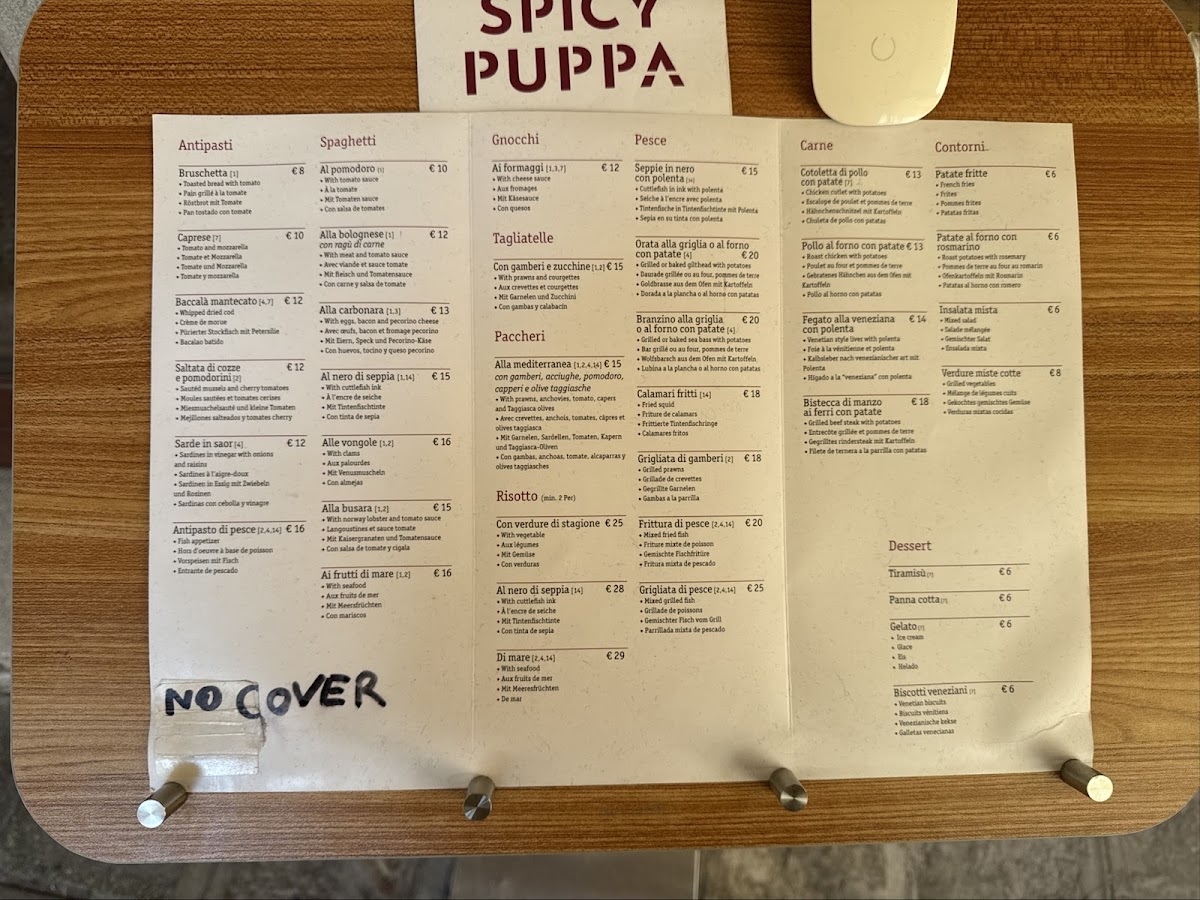 SPICY
PUPPA
Antipasti
Bruschetta [1] € 8
• Toasted bread with tomato
• Pain grillé à la tomate
• Röstbrot mit Tomate
• Pan tostado con tomate
Caprese [7] € 10
• Tomato and mozzarella
• Tomate et Mozzarella
• Tomate und Mozzarella
• Tomate y mozzarella
Baccalà mantecato [4,7] € 12
• Whipped dried cod
• Crème de morue
• Pürierter Stockfisch mit Petersilie
• Bacalao batido
Saltata di cozze € 12
e pomodorini [2]
• Sautéd mussels and cherry tomatoes
• Moules sautées et tomates cerises
• Miesmuschelsauté und kleine Tomaten
• Mejillones salteados y tomates cherry
Sarde in saor [4] € 12
• Sardines in vinegar with onions
and raisins
• Sardines à l'aigre-doux
• Sardinen in Essig mit Zwiebeln
und Rozinen
• Sardinas con cebolla y vinagre
Antipasto di pesce [2,4,14] € 16
• Fish appetizer
• Hors d'oeuvre à base de poisson
• Vorspeisen mit Fisch
• Entrante de pescado
Spaghetti
Al pomodoro [1] € 10
• With tomato sauce
• À la tomate
• Mit Tomaten sauce
• Con salsa de tomates
Alla bolognese [1] € 12
con ragù di carne
• With meat and tomato sauce
• Avec viande et sauce tomate
• Mit fleisch und Tomatensauce
• Con carne y salsa de tomate
Alla carbonara [1,3] € 13
• With eggs, bacon and pecorino cheese
• Avec œufs, bacon et fromage pecorino
• Mit Eiern, Speck und Pecorino-Käse
• Con huevos, tocino y queso pecorino
Al nero di seppia [1,14] € 15
• With cuttlefish ink
• À l'encre de seiche
• Mit Tintenfischtinte
• Con tinta de sepia
Alle vongole [1,2] € 16
• With clams
• Aux palourdes
• Mit Venusmuscheln
• Con almejas
Alla busara [1,2] € 15
• With norway lobster and tomato sauce
• Langoustines et sauce tomate
• Mit Kaisergranaten und Tomatensauce
• Con salsa de tomate y cigala
Ai frutti di mare [1,2] € 16
• With seafood
• Aux fruits de mer
• Mit Meersfrüchten
• Con mariscos
NO COVER
Gnocchi
Ai formaggi [1,3,7] € 12
• With cheese sauce
• Aux fromages
• Mit Käsesauce
• Con quesos
Tagliatelle
Con gamberi e zucchine [1,2] € 15
• With prawns and courgettes
• Aux crevettes et courgettes
• Mit Garnelen und Zucchini
• Con gambas y calabacin
Paccheri
Alla mediterranea [1,2,4,14] € 15
con gamberi, acciughe, pomodoro,
capperi e olive taggiasche
• With prawns, anchovies, tomato, capers
and Taggiasca olives
• Avec crevettes, anchois, tomates, câpres et
olives taggiasca
• Mit Garnelen, Sardellen, Tomaten, Kapern
und Taggiasca-Oliven
• Con gambas, anchoas, tomate, alcaparras y
olives taggiasches
Risotto (min. 2 Per)
Con verdure di stagione € 25
• With vegetable
• Aux légumes
• Mit Gemüse
• Con verduras
Al nero di seppia [14] € 28
• With cuttlefish ink
• À l'encre de seiche
• Mit Tintenfischtinte
• Con tinta de sepia
Di mare [2,4,14] € 29
• With seafood
• Aux fruits de mer
• Mit Meeresfrüchten
• De mar
Pesce
Seppie in nero € 15
con polenta [14]
• Cuttlefish in ink with polenta
• Seiche à l'encre avec polenta
• Tintenfische in Tintenfischtinte mit Polenta
• Sepia en su tinta con polenta
Orata alla griglia o al forno
con patate [4] € 20
• Grilled or baked gilthead with potatoes
• Daurade grillée ou au four, pommes de terre
• Goldbrasse aus dem Ofen mit Kartoffeln
• Dorada a la plancha o al horno con patatas
Branzino alla griglia € 20
o al forno con patate [4]
• Grilled or baked sea bass with potatoes
• Bar grillé ou au four, pommes de terre
• Wolfsbarsch aus dem Ofen mit Kartoffeln
• Lubina a la plancha o al horno con patatas
Calamari fritti [14] € 18
• Fried squid
• Friture de calamars
• Frittierte Tintenfischringe
• Calamares fritos
Grigliata di gamberi [2] € 18
• Grilled prawns
• Grillade de crevettes
• Gegrillte Garnelen
• Gambas a la parrilla
Frittura di pesce [2,4,14] € 20
• Mixed fried fish
• Friture mixte de poisson
• Gemischte Fischfritüre
• Fritura mixta de pescado
Grigliata di pesce [2,4,14] € 25
• Mixed grilled fish
• Grillade de poissons
• Gemischter Fisch vom Grill
• Parrillada mixta de pescado
Carne
Cotoletta di pollo € 13
con patate [7]
• Chicken cutlet with potatoes
• Escalope de poulet et pommes de terre
• Hähnchenschnitzel mit Kartoffeln
• Chuleta de pollo con patatas
Pollo al forno con patate € 13
• Roast chicken with potatoes
• Poulet au four et pommes de terre
• Gebratenes Hähnchen aus dem Ofen mit
Kartoffeln
• Pollo al horno con patatas
Fegato alla veneziana € 14
con polenta
• Venetian style liver with polenta
• Foie à la vénitienne et polenta
• Kalbsleber nach venezianischer art mit
Polenta
• Higado a la "veneziana" con polenta
Bistecca di manzo € 18
ai ferri con patate
• Grilled beef steak with potatoes
• Entrecôte grillée et pommes de terre
• Gegrilltes rindersteak mit Kartoffeln
• Filete de ternera a la parrilla con patatas
Contorni
Patate fritte € 6
• French fries
• Frites
• Pommes frites
• Patatas fritas
Patate al forno con € 6
rosmarino
• Roast potatoes with rosemary
• Pommes de terre au four au romarin
• Ofenkartoffeln mit Rosmarin
• Patatas al horno con romero
Insalata mista € 6
• Mixed salad
• Salade mélangée
• Gemischter Salat
• Ensalada mixta
Verdure miste cotte € 8
• Grilled vegetables
• Mélange de légumes cuits
• Gekochtes gemischtes Gemüse
• Verduras mixtas cocidas
Dessert
Tiramisù [7] € 6
Panna cotta [7] € 6
Gelato [7] € 6
• Ice cream
• Glace
• Eis
• Helado
Biscotti veneziani [7] € 6
• Venetian biscuits
• Biscuits vénitiens
• Venezianische kekse
• Galletas venecianas